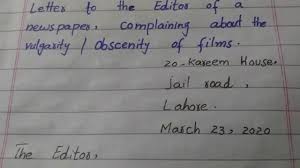 Letter to the Editor of a
newspaper, complaining about the
vulgarity / Obscenity of films.
20-Kareem House,
jail road,
Lahore.
March 23, 2020
The Editor,